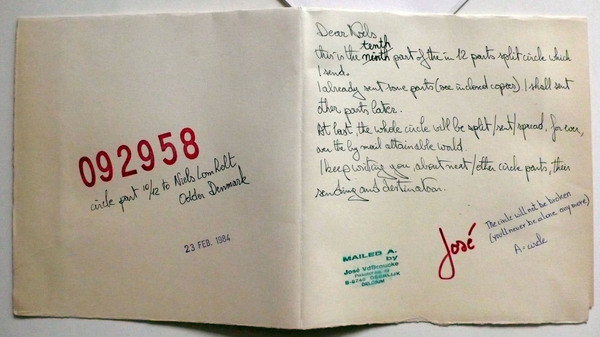 092958
circle part 10/12 to Niels Lomholt
Odder Denmark
23 FEB. 1984
Dear Niels
tenth
this is the ninth part of the in 12 parts split circle which
I send.
I already sent some parts (see inclosed copies) I shall sent
other parts later.
At last the whole circle will be split/sent/spread, for ever,
over the by mail attainable world.
I keep writing you about next/other circle parts, their
sending and destination.
José
The circle will not be broken
(you'll never be alone any more)
A = circle
MAILED A.
by
José VdBroucke
B-8740 DEERLIJK
BELGIUM